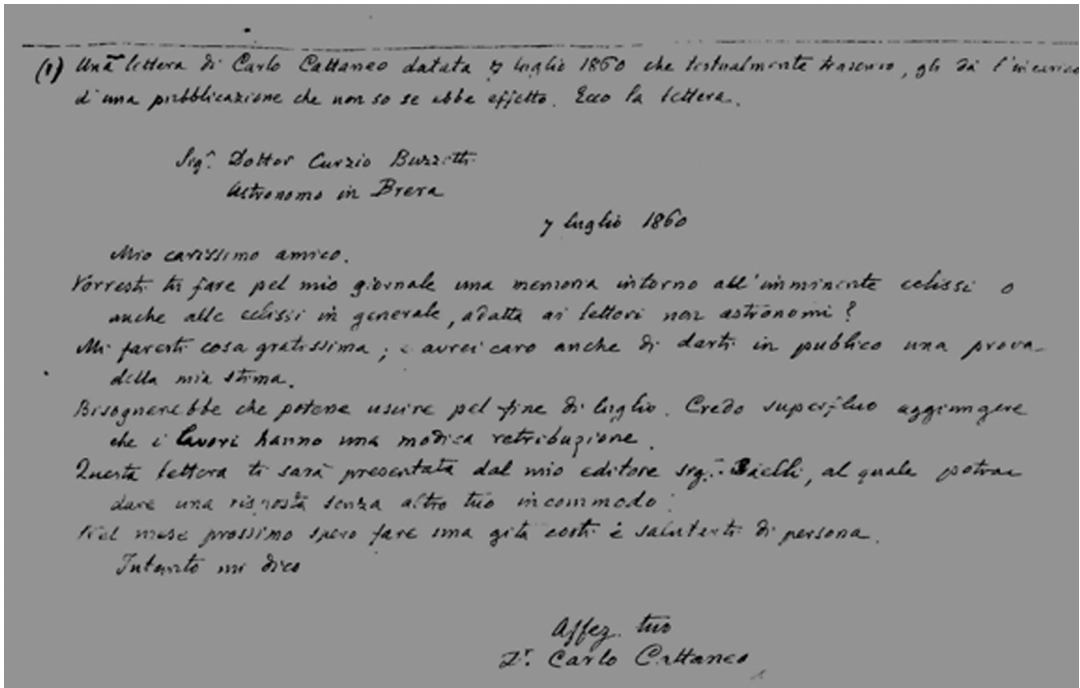 (1) Una lettera di Carlo Cattaneo datata 7 luglio 1860 che testualmente trascrivo, gli dà l'incarico
d'una pubblicazione che non so se ebbe effetto. Ecco la lettera.
Sig.r Dottor Curzio Buzzetti
Astronomo in Brera
7 luglio 1860
Mio carissimo amico.
Vorresti tu fare pel mio giornale una memoria intorno all'imminente eclissi o
anche alle eclissi in generale, adatta ai lettori non astronomi?
Mi faresti cosa gratissima; e avrei caro anche di darti in publico una prova
della mia stima.
Bisognerebbe che potesse uscire pel fine di luglio. Credo superfluo aggiungere
che i lavori hanno una modica retribuzione.
Questa lettera ti sarà presentata dal mio editore sig.r Daelli, al quale potrai
dare una risposta senza altro tuo incommodo.
Nel mese prossimo spero fare una gita costì e salutarti di persona.
Intanto mi dico
Affez. tuo
Dr. Carlo Cattaneo